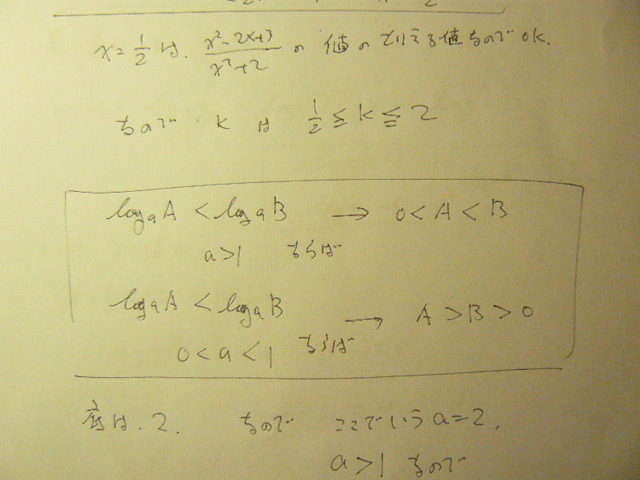 x=1/2 は. (x²-2x+3)/(x²+2) の 値の とりえる値なので OK.
なので k は 1/2 ≦ k ≦ 2
log_a A < log_a B → 0 < A < B
a>1 ならば
log_a A < log_a B → A > B > 0
0 < a < 1 ならば
底は. 2. なので ここでいう a=2.
a>1 なので